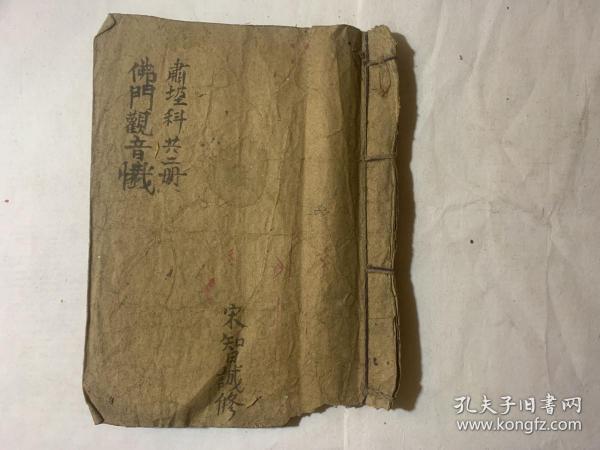 肅坛科共二册
佛門觀音懴
宋智誠修
孔夫子旧书网
www.kongfz.com